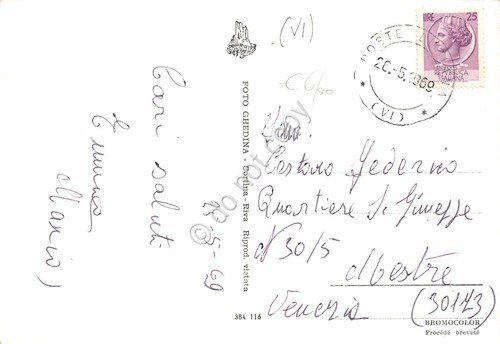 (VI)
€ 6,00
Cari saluti
Emma
Mario)
15-5-69
FOTO GHEDINA - Cortina - Riva Riprod. vietata
do not copy
LIRE 25
POSTE
20.-5.1969
* (VI) *
Castoro Federico
Quartiere S. Giuseppe
N 30/5
Mestre
(30173)
Venezia
384 116
BROMOCOLOR
Procédé breveté